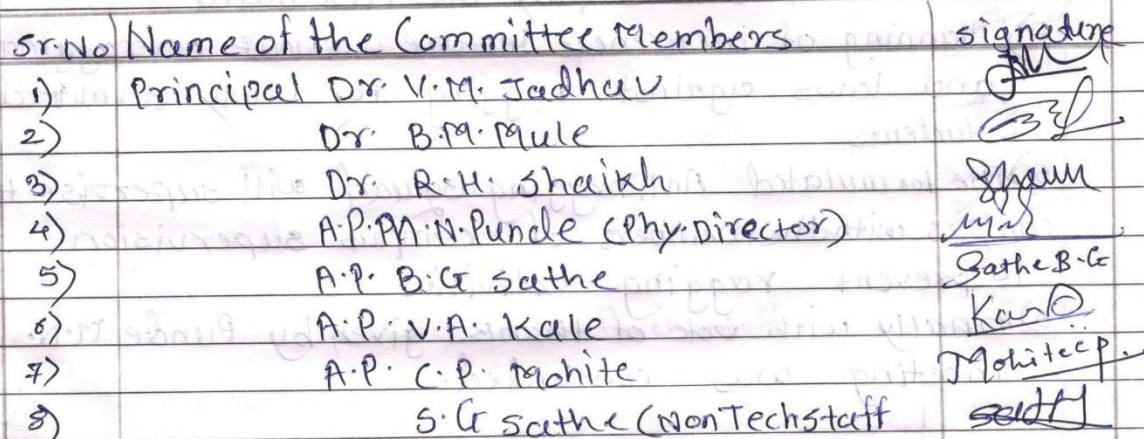 Sr.No Name of the Committee Members signature
1) Principal Dr. V.M. Jadhav
2) Dr. B.M. Mule
3) Dr. R.H. Shaikh
4) A.P. M.N. Punde (Phy. Director)
5) A.P. B.G sathe Sathe B.G
6) A.P. V.A. Kale
7) A.P. C.P. Mohite Mohite C P.
8) S.G sathe (Non Techstaff